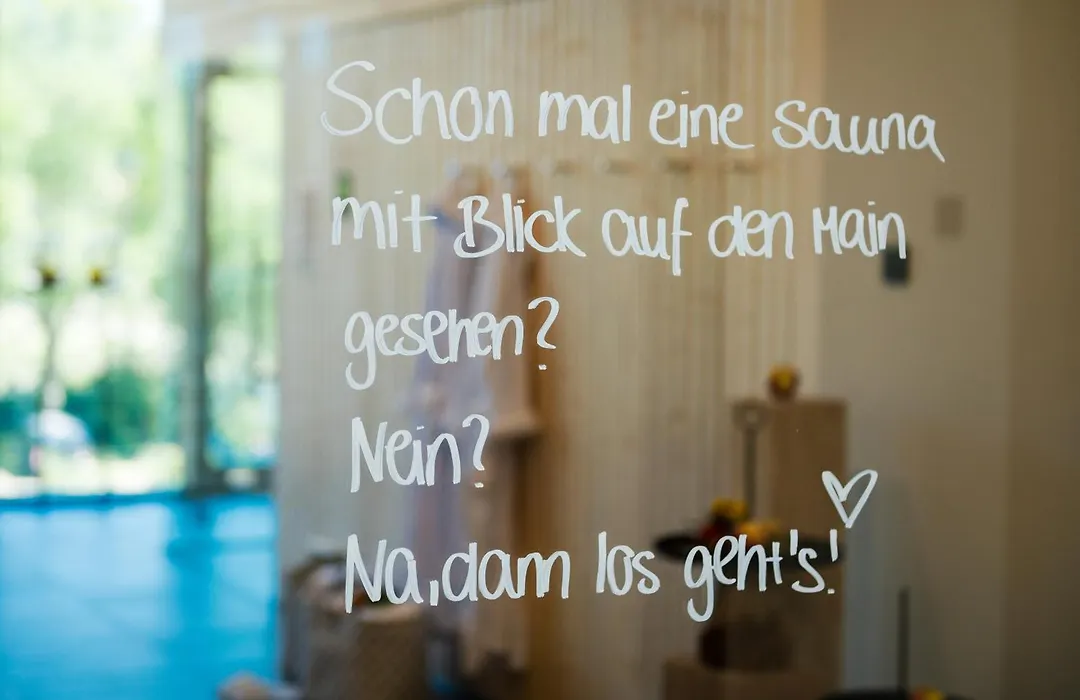 Schon mal eine Sauna
mit Blick auf den Main
gesehen?
Nein?
Na, dam los geht's!